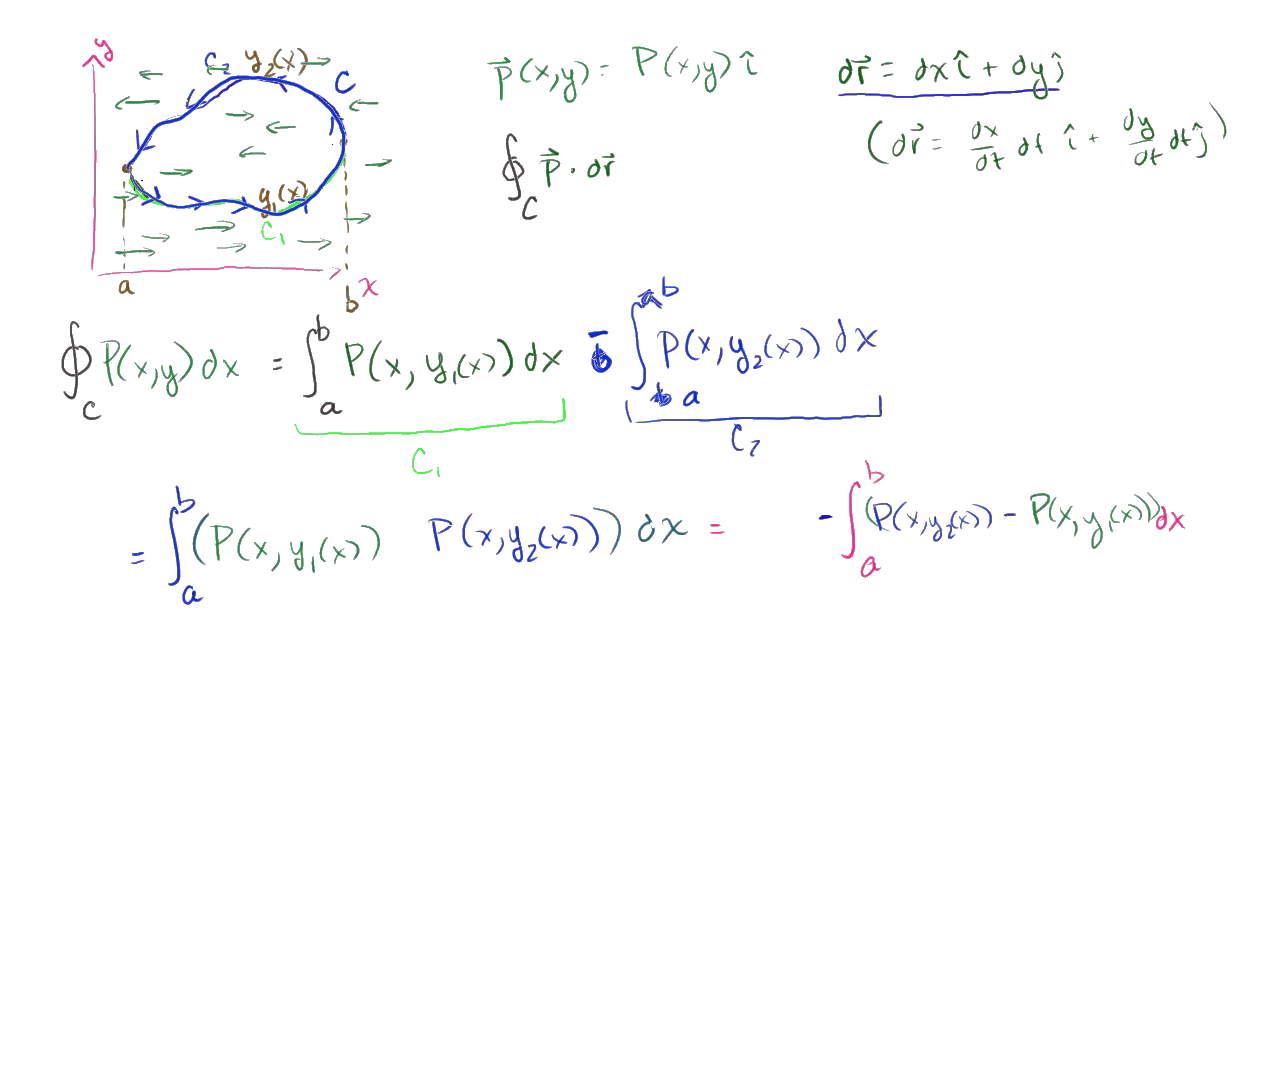 y
C₂ y₂(x)
C
y₁(x)
C₁
a b x
p⃗(x,y) = P(x,y) î
∮_C p⃗ · dr⃗
dr⃗ = dx î + dy ĵ
(dr⃗ = dx/dt dt î + dy/dt dt ĵ)
∮_C P(x,y) dx = ∫_a^b P(x, y₁(x)) dx − ∫_a^b P(x, y₂(x)) dx
C₁ C₂
= ∫_a^b (P(x, y₁(x)) P(x, y₂(x))) dx = − ∫_a^b (P(x, y₂(x)) − P(x, y₁(x))) dx